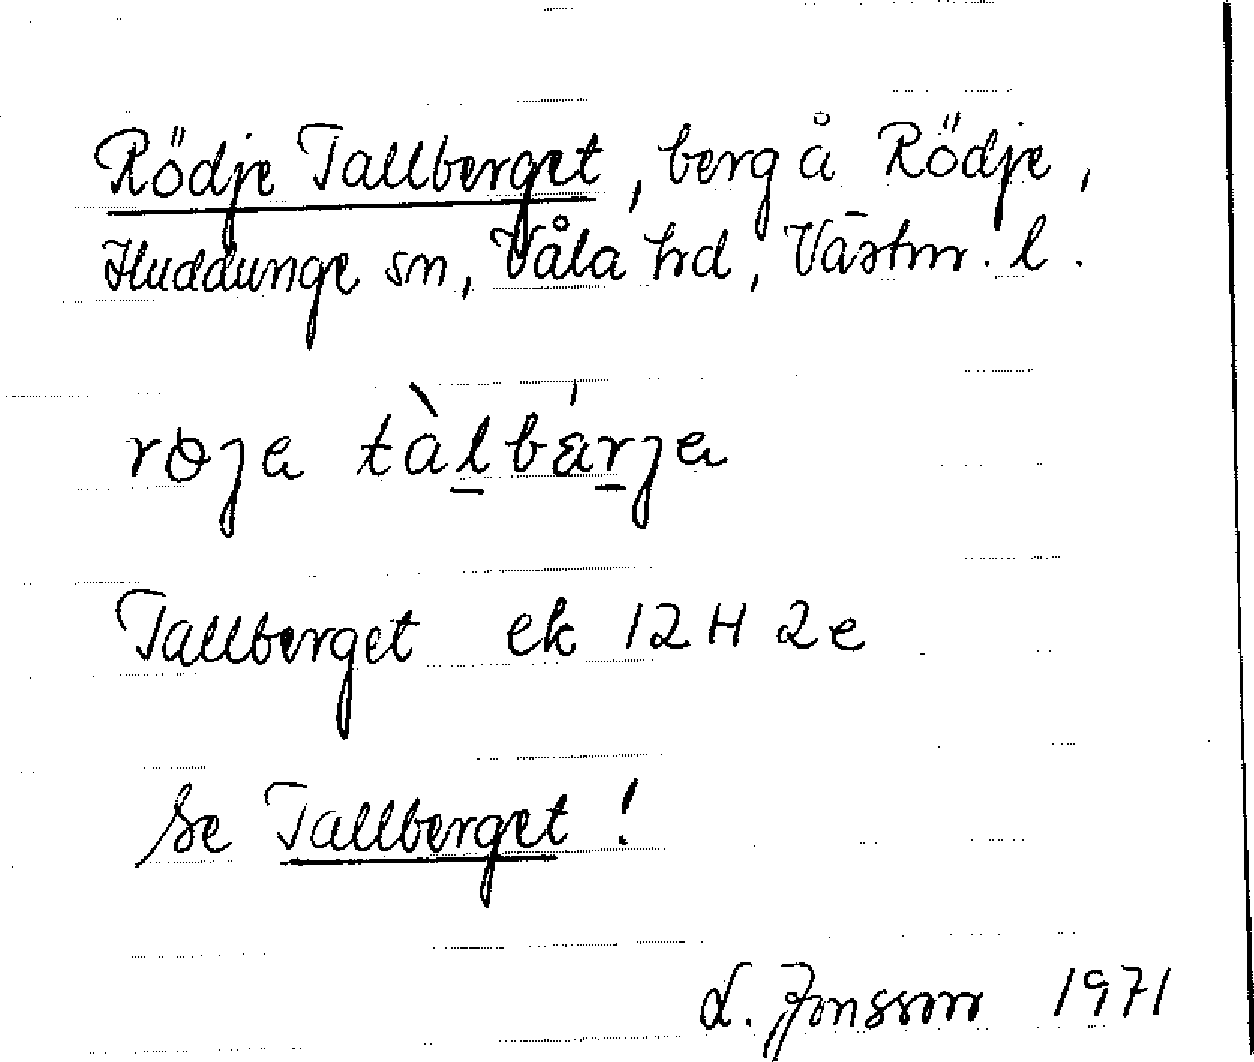 Rödje Tallberget, berg å Rödje,
Huddunge sn, Våla hd, Västm. l.
røja tàlbärja
Tallberget ek 12H 2e
Se Tallberget!
L. Jonsson 1971